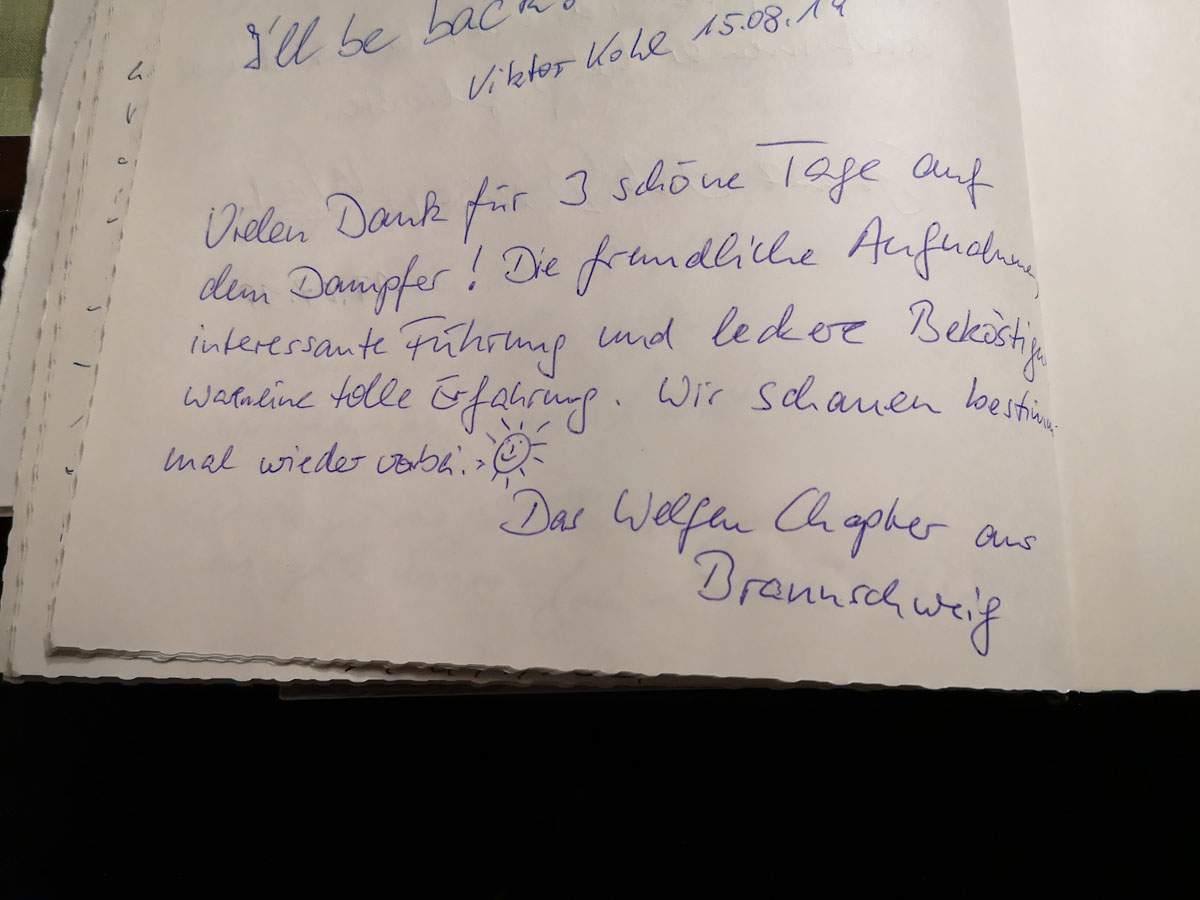 I'll be back.
Viktor Kohl 15.08.14
Vielen Dank für 3 schöne Tage auf
dem Dampfer! Die freundliche Aufnahme,
interessante Führung und leckere Beköstigung
war eine tolle Erfahrung. Wir schauen bestimmt
mal wieder vorbei.
Das Welfen Chapter aus
Braunschweig